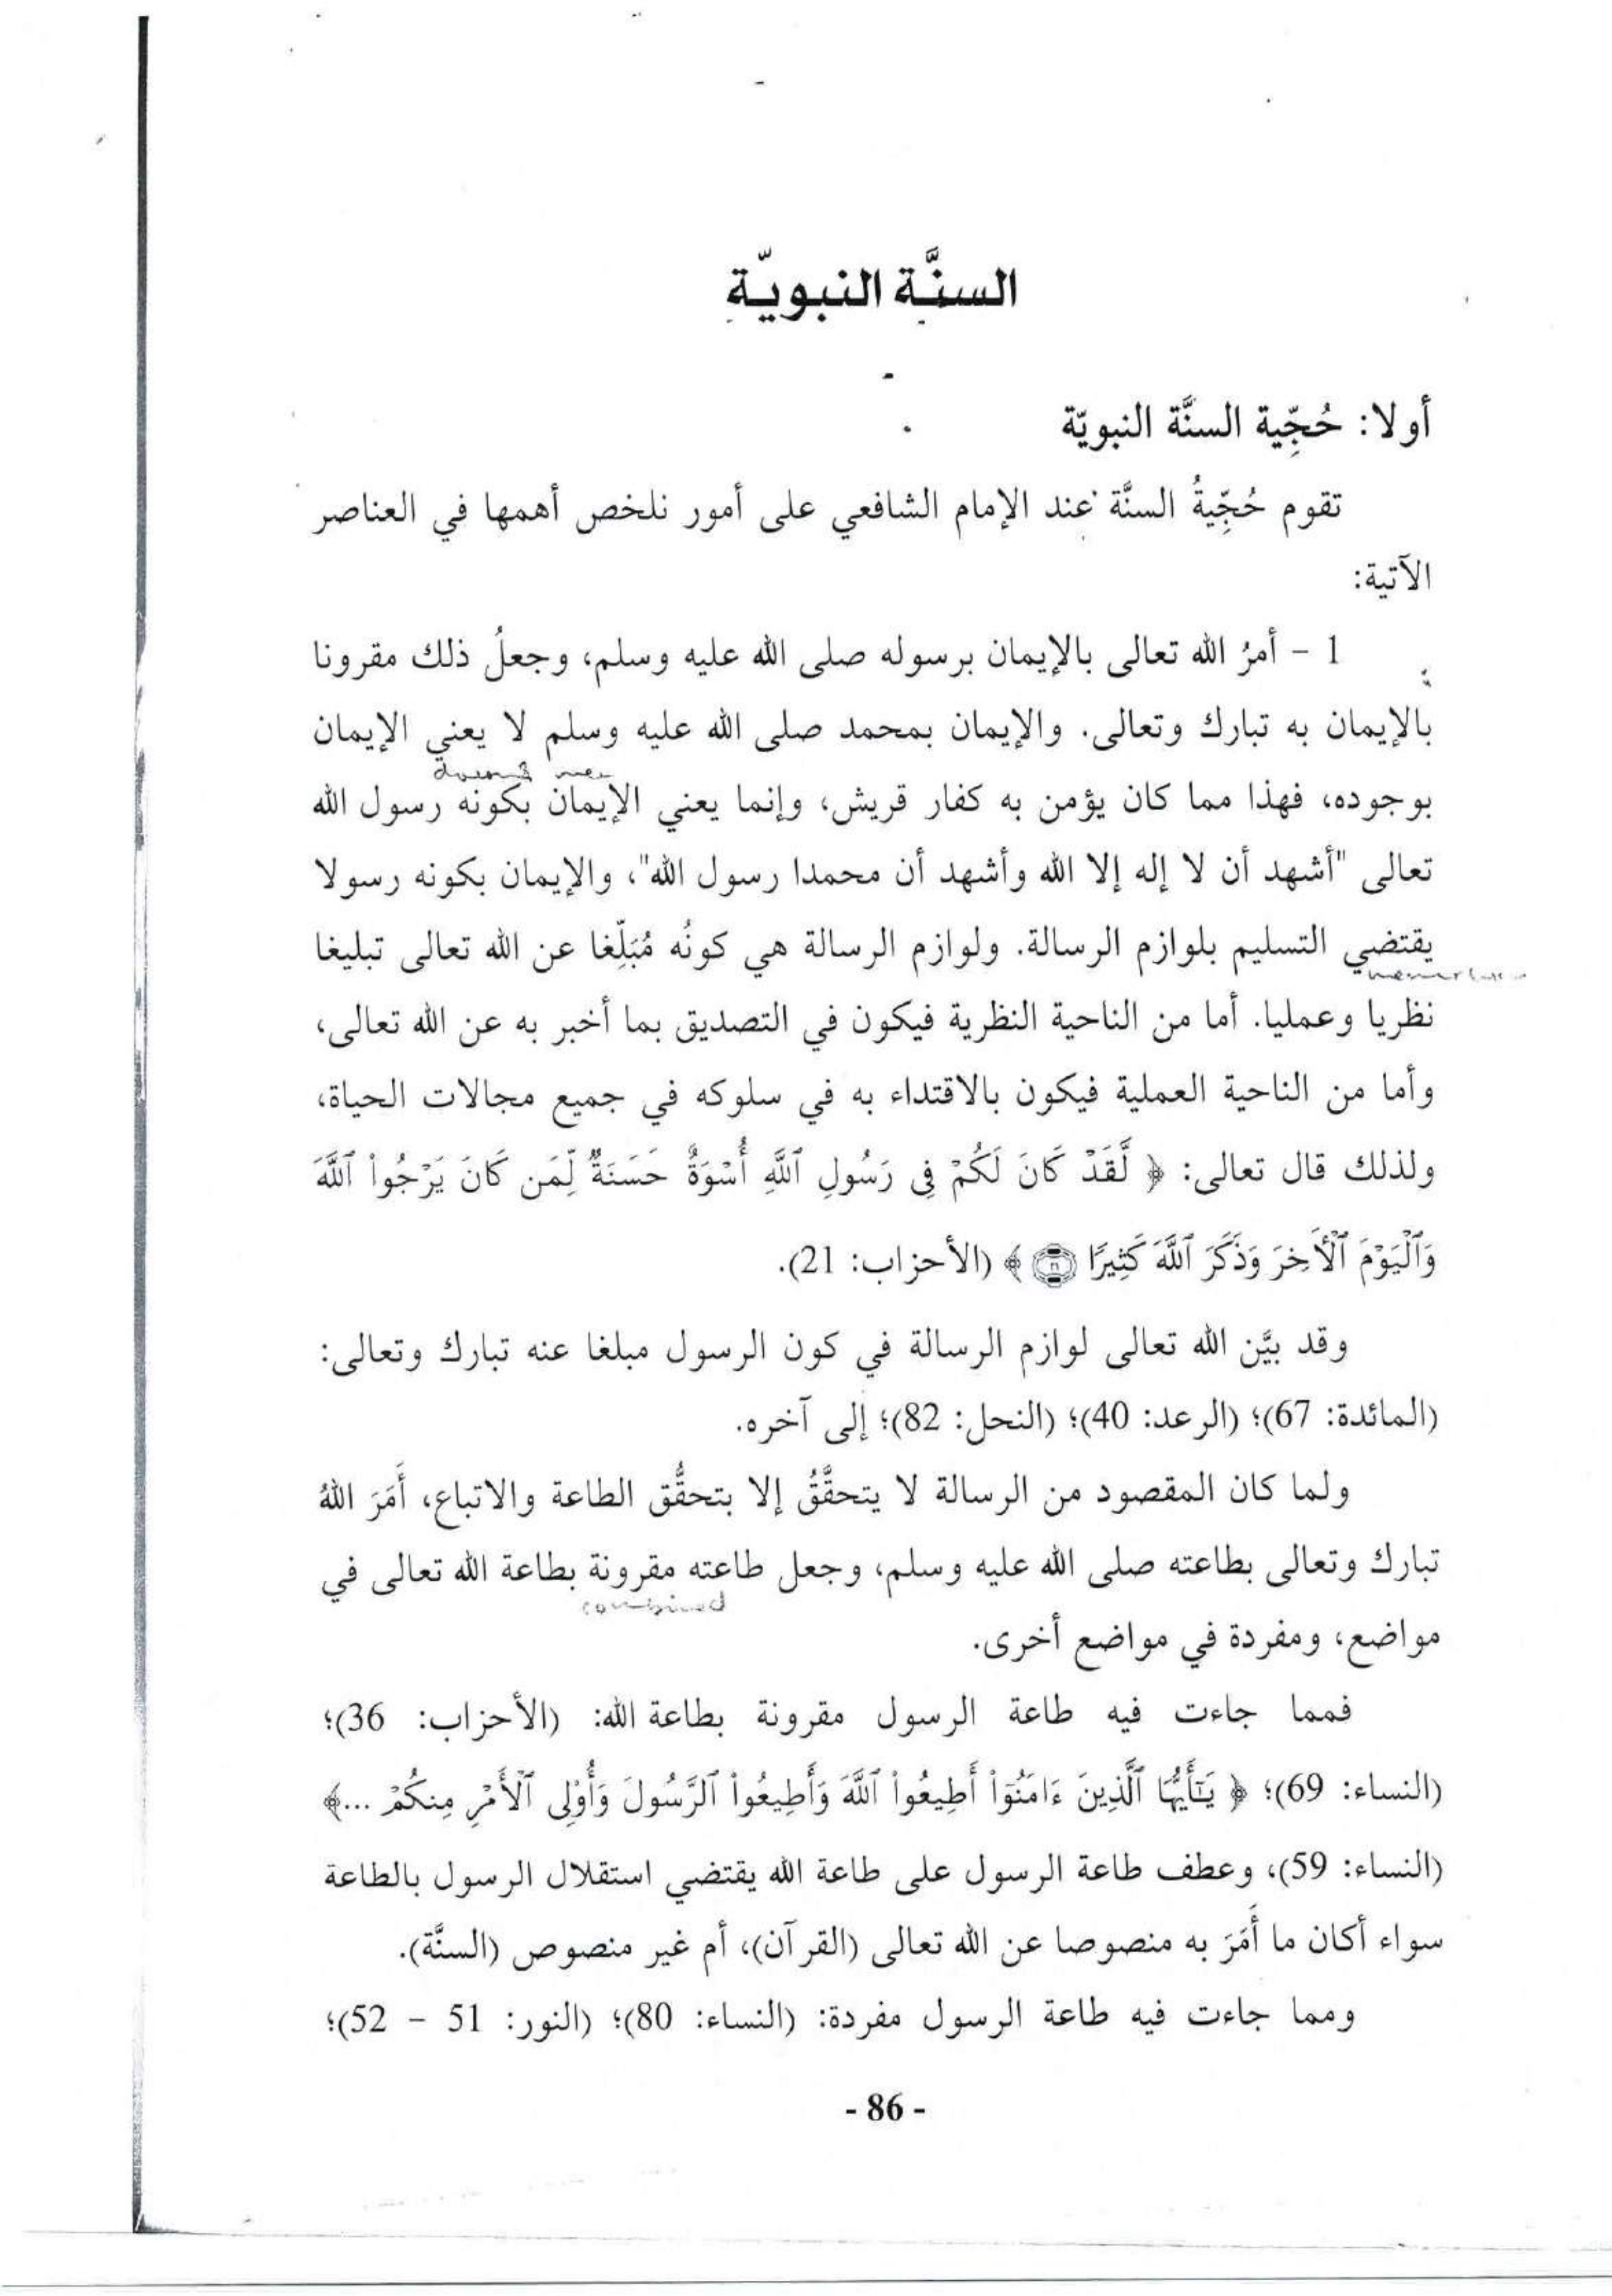 السنَّة النبويّة
أولا: حُجِّية السنَّة النبويّة
تقوم حُجِّيةُ السنَّة عند الإمام الشافعي على أمور نلخص أهمها في العناصر
الآتية:
1 - أمرُ الله تعالى بالإيمان برسوله صلى الله عليه وسلم، وجعلُ ذلك مقرونا
بالإيمان به تبارك وتعالى. والإيمان بمحمد صلى الله عليه وسلم لا يعني الإيمان
بوجوده، فهذا مما كان يؤمن به كفار قريش، وإنما يعني الإيمان بكونه رسول الله
تعالى "أشهد أن لا إله إلا الله وأشهد أن محمدا رسول الله"، والإيمان بكونه رسولا
يقتضي التسليم بلوازم الرسالة. ولوازم الرسالة هي كونُه مُبَلِّغا عن الله تعالى تبليغا
نظريا وعمليا. أما من الناحية النظرية فيكون في التصديق بما أخبر به عن الله تعالى،
وأما من الناحية العملية فيكون بالاقتداء به في سلوكه في جميع مجالات الحياة،
ولذلك قال تعالى: ﴿ لَّقَدْ كَانَ لَكُمْ فِى رَسُولِ ٱللَّهِ أُسْوَةٌ حَسَنَةٌ لِّمَن كَانَ يَرْجُوا۟ ٱللَّهَ
وَٱلْيَوْمَ ٱلْأَخِرَ وَذَكَرَ ٱللَّهَ كَثِيرًا ۝٢١ ﴾ (الأحزاب: 21).
وقد بيَّن الله تعالى لوازم الرسالة في كون الرسول مبلغا عنه تبارك وتعالى:
(المائدة: 67)؛ (الرعد: 40)؛ (النحل: 82)؛ إلى آخره.
ولما كان المقصود من الرسالة لا يتحقَّقُ إلا بتحقُّق الطاعة والاتباع، أَمَرَ اللهُ
تبارك وتعالى بطاعته صلى الله عليه وسلم، وجعل طاعته مقرونة بطاعة الله تعالى في
combined
مواضع، ومفردة في مواضع أخرى.
فمما جاءت فيه طاعة الرسول مقرونة بطاعة الله: (الأحزاب: 36)؛
(النساء: 69)؛ ﴿ يَـٰٓأَيُّهَا ٱلَّذِينَ ءَامَنُوٓا۟ أَطِيعُوا۟ ٱللَّهَ وَأَطِيعُوا۟ ٱلرَّسُولَ وَأُو۟لِى ٱلْأَمْرِ مِنكُمْ ...﴾
(النساء: 59)، وعطف طاعة الرسول على طاعة الله يقتضي استقلال الرسول بالطاعة
سواء أكان ما أَمَرَ به منصوصا عن الله تعالى (القرآن)، أم غير منصوص (السنَّة).
ومما جاءت فيه طاعة الرسول مفردة: (النساء: 80)؛ (النور: 51 - 52)؛
- 86 -